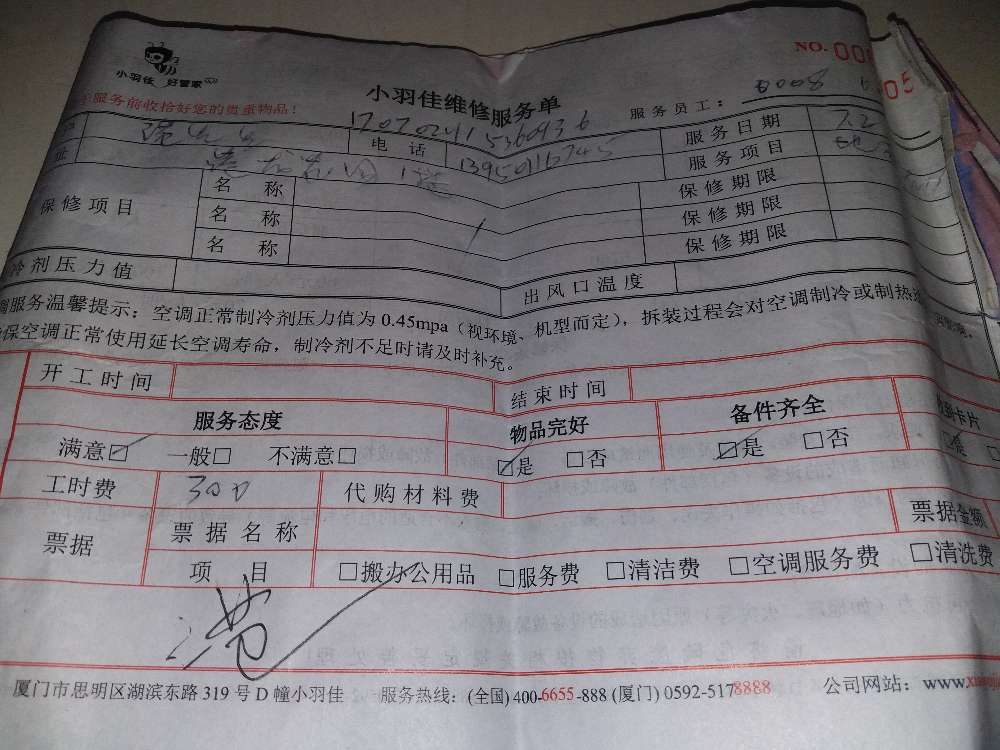 小羽佳 好管家
NO. 00
05
服务前收拾好您的贵重物品！
小羽佳维修服务单
服务员工： 0008
170702415360936
电话 13950116745
服务日期 7.2
服务项目
保修项目 名称 保修期限
名称 保修期限
名称 保修期限
冷剂压力值 出风口温度
调服务温馨提示：空调正常制冷剂压力值为0.45mpa（视环境、机型而定），拆装过程会对空调制冷或制热
保空调正常使用延长空调寿命，制冷剂不足时请及时补充。
开工时间 结束时间
服务态度 物品完好 备件齐全 收到卡片
满意☑ 一般□ 不满意□ ☑是 □否 ☑是 □否 □是
工时费 300 代购材料费
票据 票据名称 票据金额
项目 □搬办公用品 □服务费 □清洁费 □空调服务费 □清洗费
厦门市思明区湖滨东路319号D幢小羽佳 服务热线：(全国) 400-6655-888 (厦门) 0592-5178888 公司网站：www.